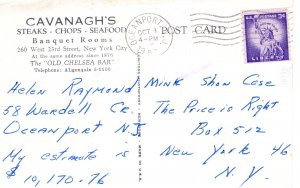 CAVANAGH'S
STEAKS - CHOPS - SEAFOOD
Banquet Rooms
260 West 23rd Street, New York City
At the same address since 1876
The "OLD CHELSEA BAR"
Telephone: Algonquin
POST CARD
OCEANPORT
OCT 1
4-PM
U.S. POSTAGE
3¢
LIBERTY
Helen Raymond
58 Wardell Cr.
Oceanport NJ
My estimate is
$10,170.76
Mink Show Case
The Price is Right
Box 512
New York 46
N.Y.